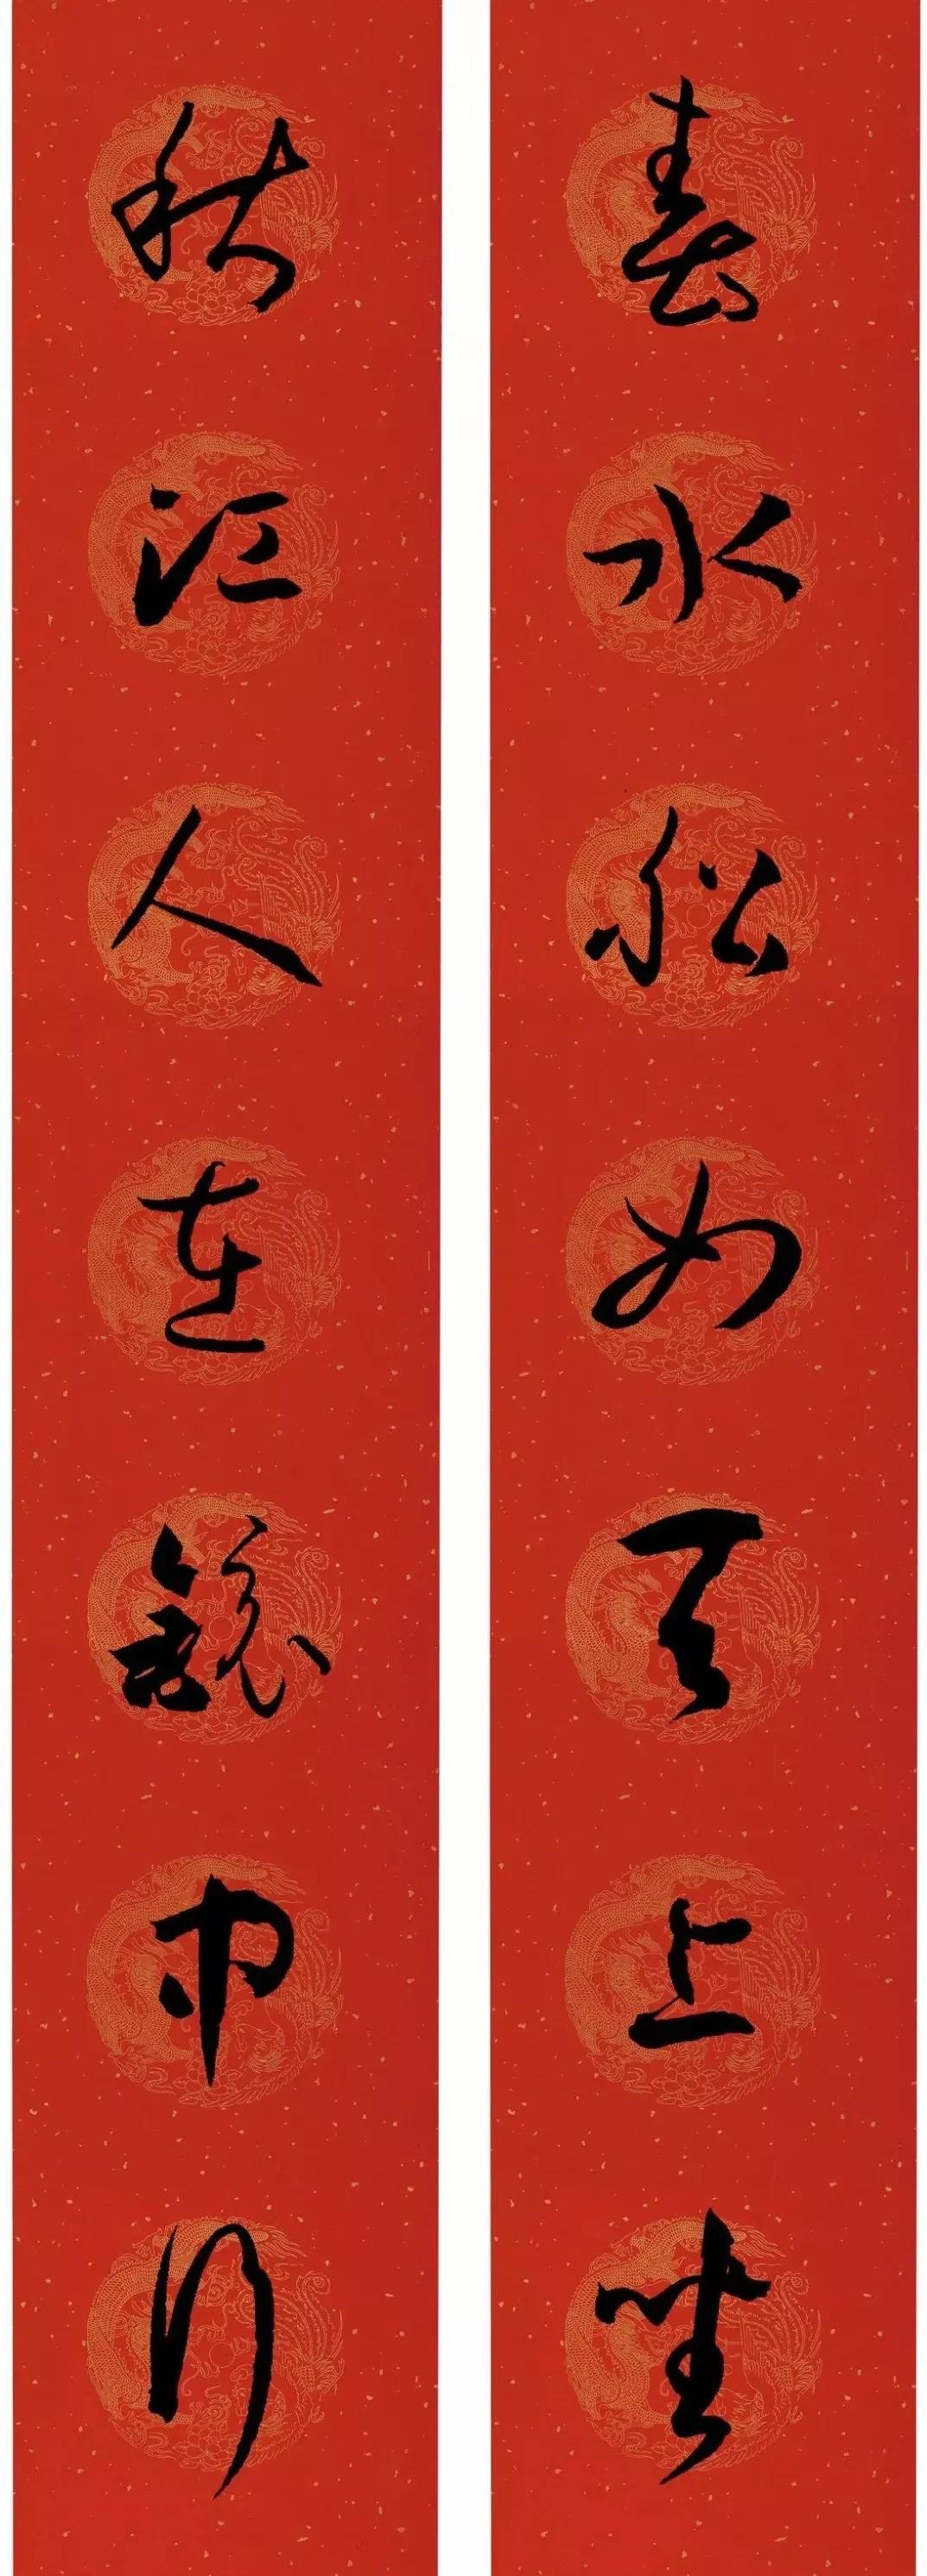 春水船如天上坐
秋江人在中行